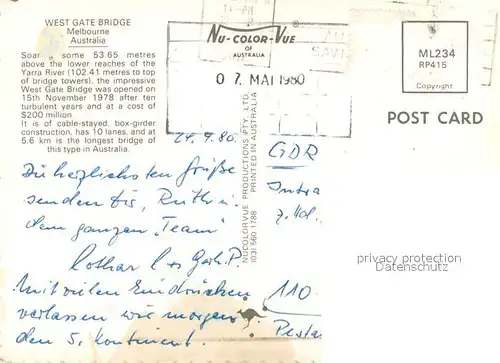 WEST GATE BRIDGE
Melbourne
Australia
Soaring some 53.65 metres
above the lower reaches of the
Yarra River (102.41 metres to top
of bridge towers), the impressive
West Gate Bridge was opened on
15th November 1978 after ten
turbulent years and at a cost of
$200 million
It is of cable-stayed, box-girder
construction, has 10 lanes, and at
5.6 km is the longest bridge of
this type in Australia.
NU-COLOR-VUE
OF
AUSTRALIA
07. MAI 1980
ML234
RP415
Copyright
POST CARD
NUCOLORVUE PRODUCTIONS PTY. LTD.
(03) 560 1788 PRINTED IN AUSTRALIA
24.4.80.
Die herzlichsten Grüße
senden Dir, Ruth u.
dem ganzen "Team"
Lothar
Mit vielen Eindrücken
verlassen wir morgen
den 5. Kontinent.
GDR
110
privacy protection
Datenschutz